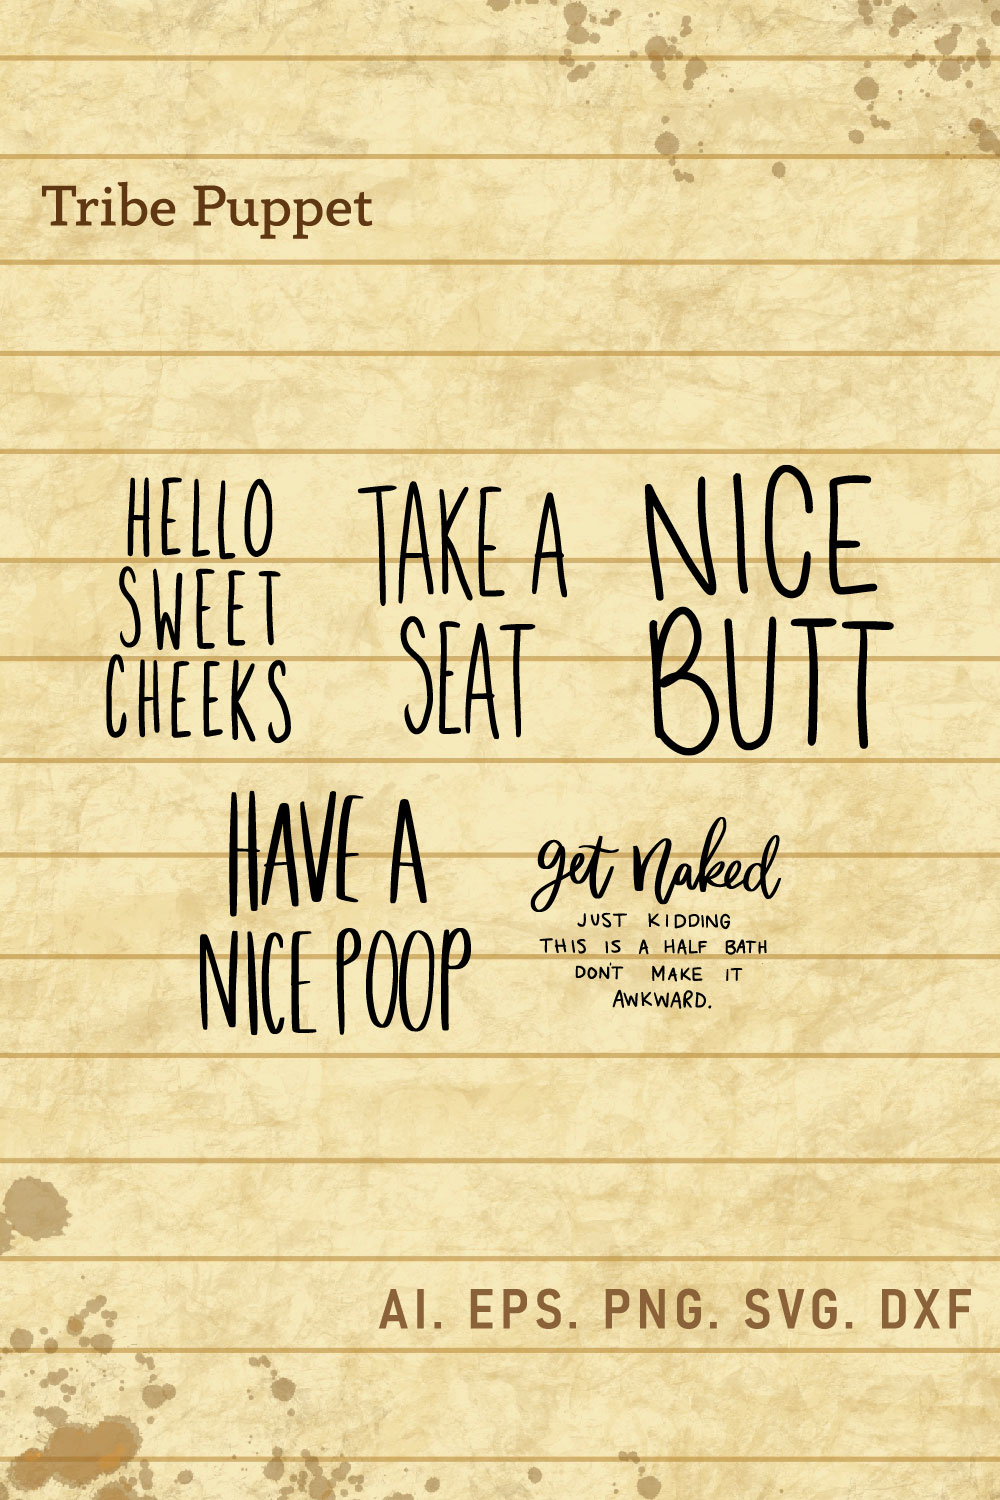 Tribe Puppet
HELLO
SWEET
CHEEKS
TAKE A
SEAT
NICE
BUTT
HAVE A
NICE POOP
get naked
JUST KIDDING
THIS IS A HALF BATH
DON'T MAKE IT
AWKWARD.
AI. EPS. PNG. SVG. DXF